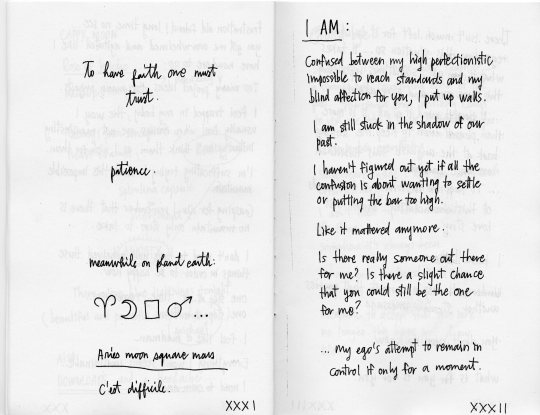 To have faith one must
trust.
patience.
meanwhile on planet earth:
♈☽□♂...
Aries moon square mars
C'est difficile.
XXXI
I AM:
Confused between my high perfectionistic
impossible to reach standards and my
blind affection for you, I put up walls.
I am still stuck in the shadow of our
past.
I haven't figured out yet if all the
confusion is about wanting to settle
or putting the bar too high.
Like it mattered anymore.
Is there really someone out there
for me? Is there a slight chance
that you could still be the one
for me?
... my ego's attempt to remain in
control if only for a moment.
XXXII